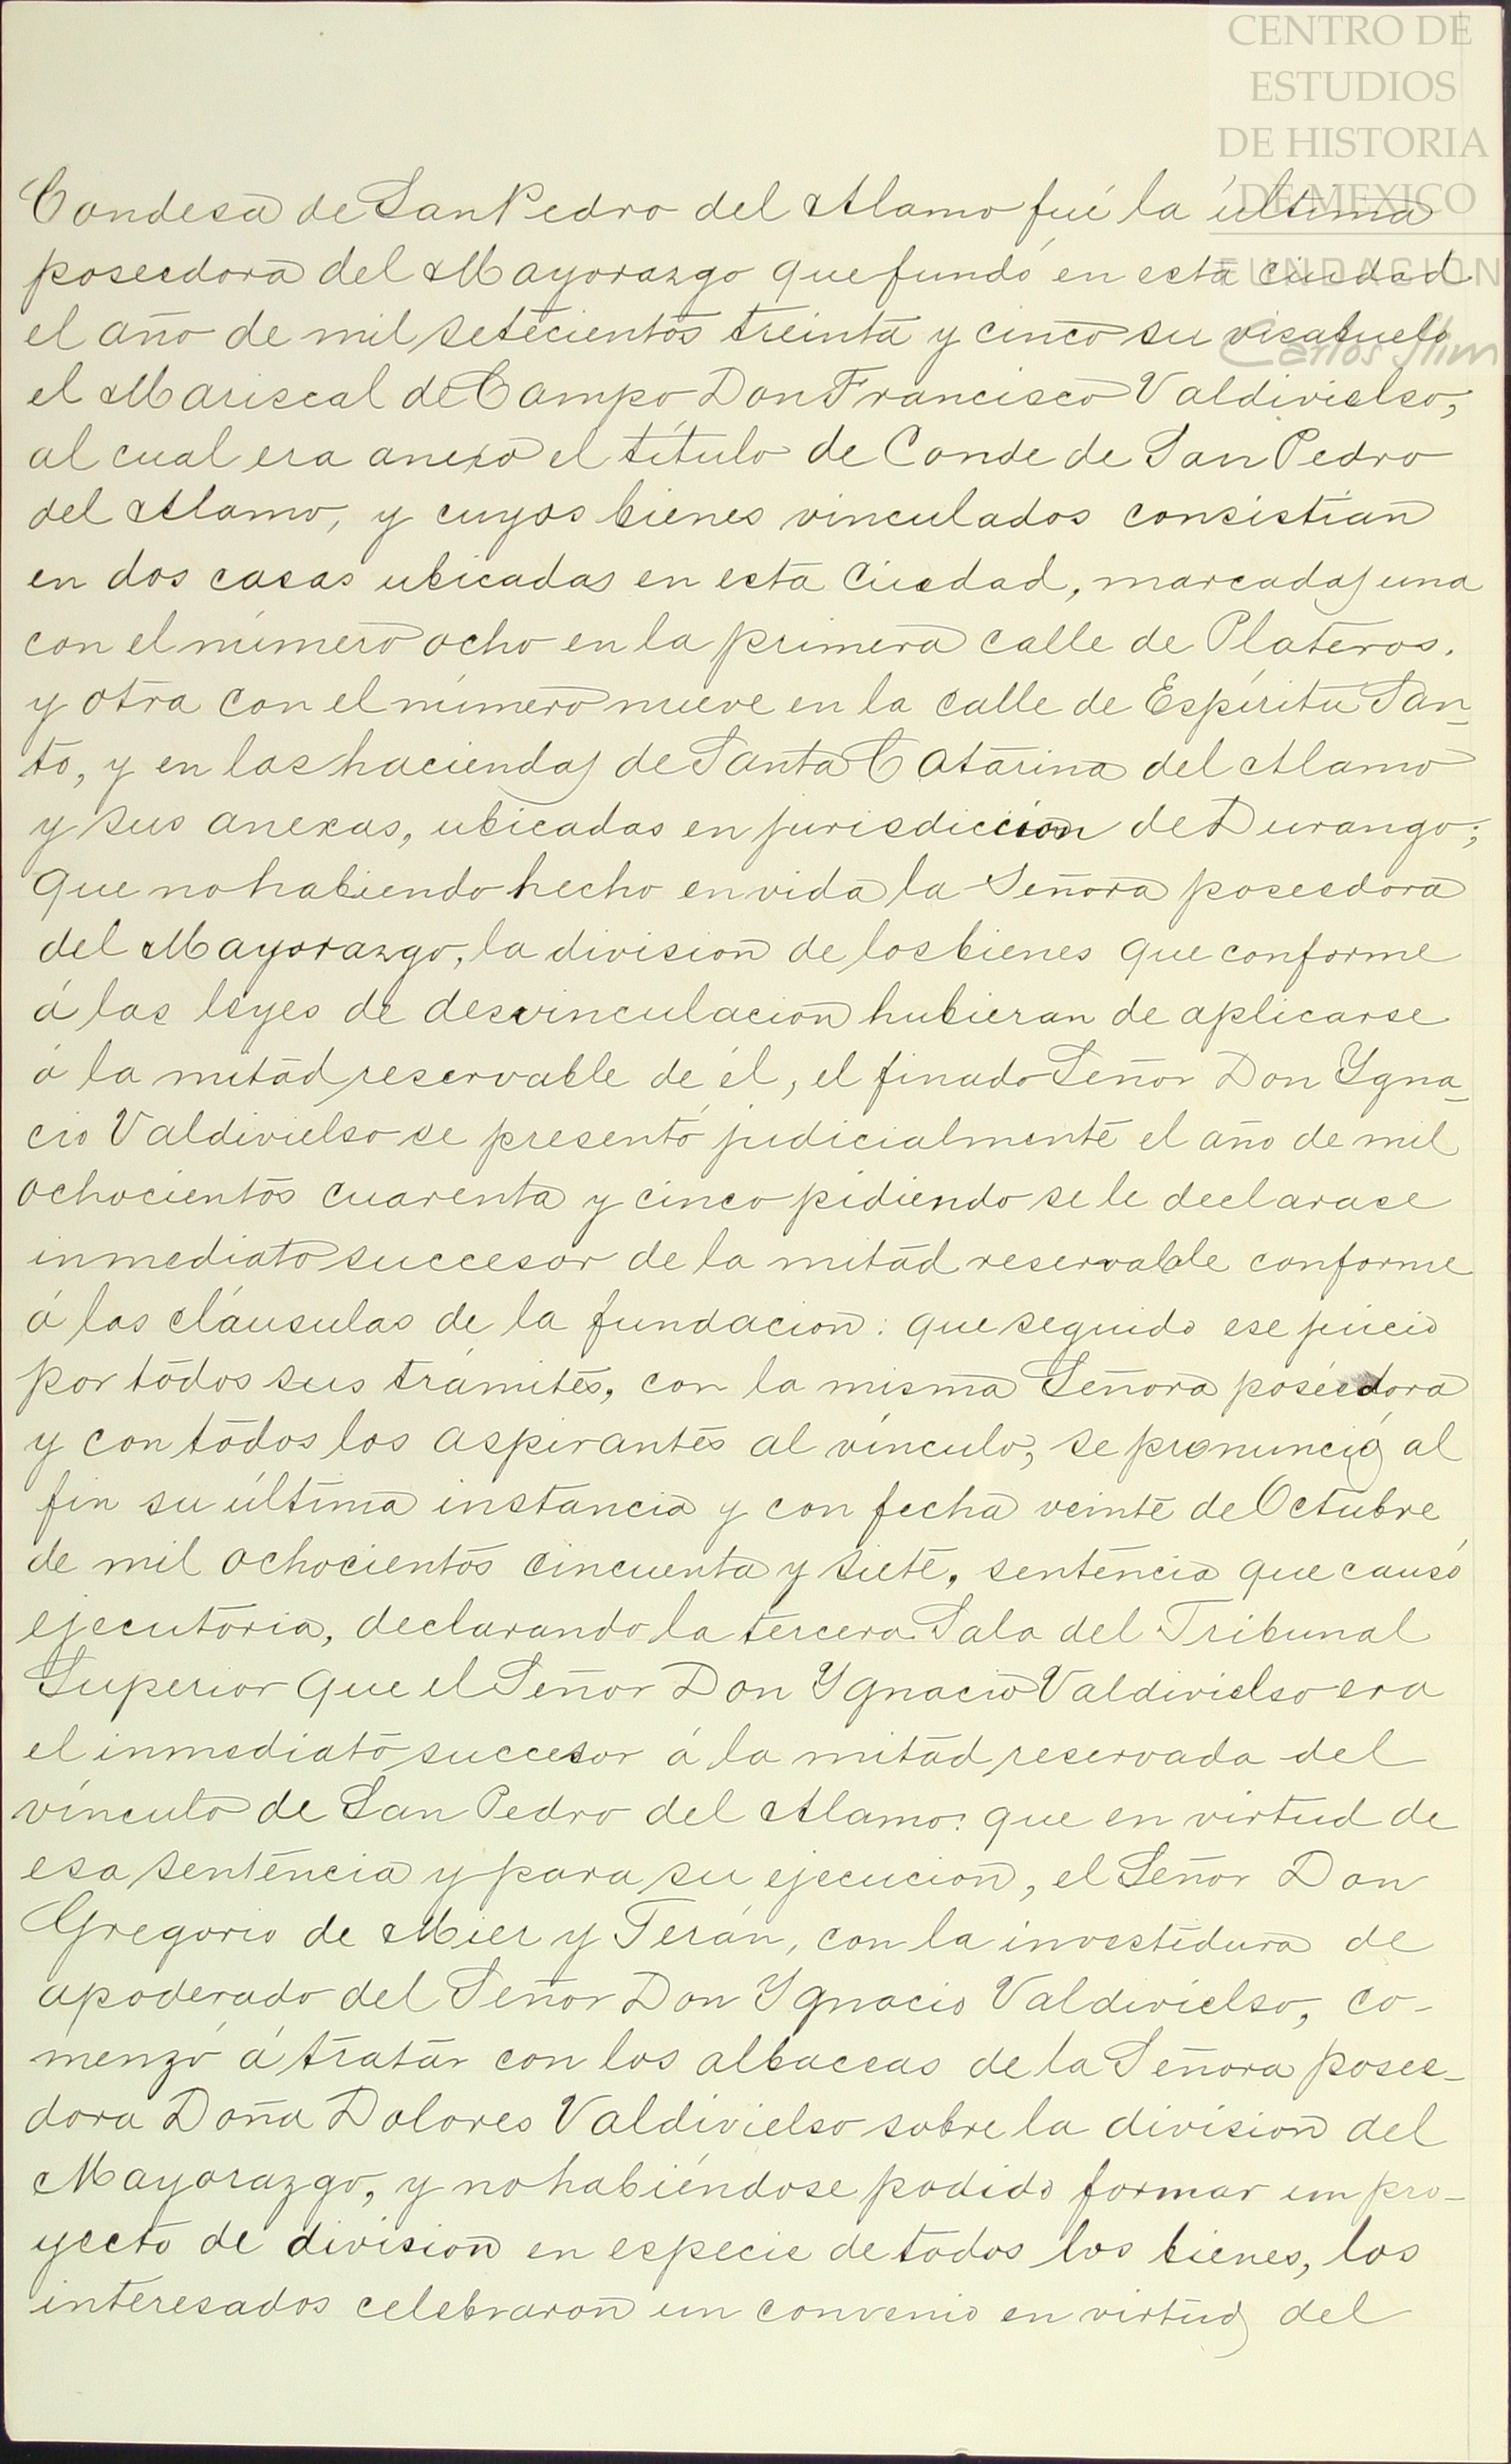 CENTRO DE
ESTUDIOS
DE HISTORIA
DE MEXICO
FUNDACION
Carlos Slim
Condesa de San Pedro del Alamo fué la última
poseedora del Mayorazgo que fundó en esta ciudad
el año de mil setecientos treinta y cinco su visabuelo
el Mariscal de Campo Don Francisco Valdivielso,
al cual era anexo el título de Conde de San Pedro
del Alamo, y cuyos bienes vinculados consistian
en dos casas ubicadas en esta Ciudad, marcadas una
con el número ocho en la primera calle de Plateros.
y otra con el número nueve en la calle de Espíritu San_
to, y en las haciendas de Santa Catarina del Alamo
y sus anexas, ubicadas en jurisdiccion de Durango;
que no habiendo hecho en vida la Señora poseedora
del Mayorazgo, la division de los bienes que conforme
á las leyes de desvinculacion hubieran de aplicarse
á la mitad reservable de él, el finado Señor Don Ygna_
cio Valdivielso se presentó judicialmente el año de mil
ochocientos cuarenta y cinco pidiendo se le declarase
inmediato succesor de la mitad reservable conforme
á las cláusulas de la fundacion: que seguido ese juicio
por todos sus trámites, con la misma Señora poseedora
y con todos los aspirantes al vínculo, se pronunció al
fin su última instancia y con fecha veinte de Octubre
de mil ochocientos cincuenta y siete, sentencia que causó
ejecutoria, declarando la tercera Sala del Tribunal
Superior que el Señor Don Ygnacio Valdivielso era
el inmediato succesor á la mitad reservada del
vínculo de San Pedro del Alamo: que en virtud de
esa sentencia y para su ejecucion, el Señor Don
Gregorio de Mier y Terán, con la investidura de
apoderado del Señor Don Ygnacio Valdivielso, co-
menzó á tratar con los albaceas de la Señora posee-
dora Doña Dolores Valdivielso sobre la division del
Mayorazgo, y no habiéndose podido formar un pro-
yecto de division en especie de todos los bienes, los
interesados celebraron un convenio en virtud del